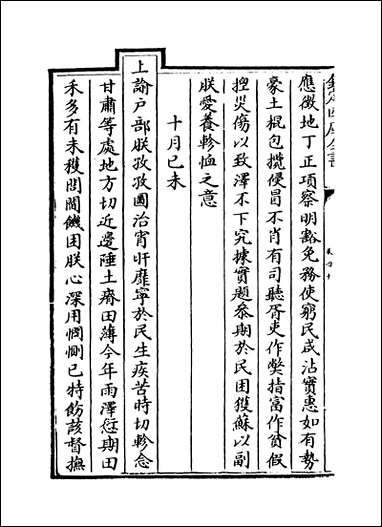 欽定四庫全書
應徵地丁正項察明豁免務使窮民咸沾實惠如有勢
豪土棍包攬侵冒不肖有司聽胥吏作獘指富作貧假
揑災傷以致澤不下究據實題叅期於民困獲蘇以副
朕愛養軫恤之意
十月己未
上諭戸部朕孜孜圖治宵旰靡寧於民生疾苦時切軫念
甘肅等處地方切近邊陲土瘠田薄今年雨澤愆期田
禾多有未穫閭閻饑困朕心深用惻惻已特飭該督撫